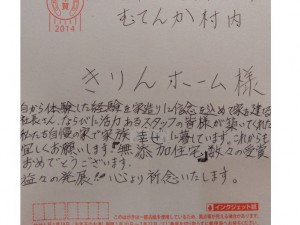 賀
2014
むてんか村内
きりんホーム様
自から体験した経験を家造りに信念を込めて家を建る
社長さん、ならびに活力あるスタッフの皆様が築いてくれた
私たち自慢の家で家族 幸せに暮しています。これからも
宜しくお願いします。『無添加住宅』数々の受賞
おめでとうございます。
益々の発展!! 心より祈念いたします。
インクジェット紙